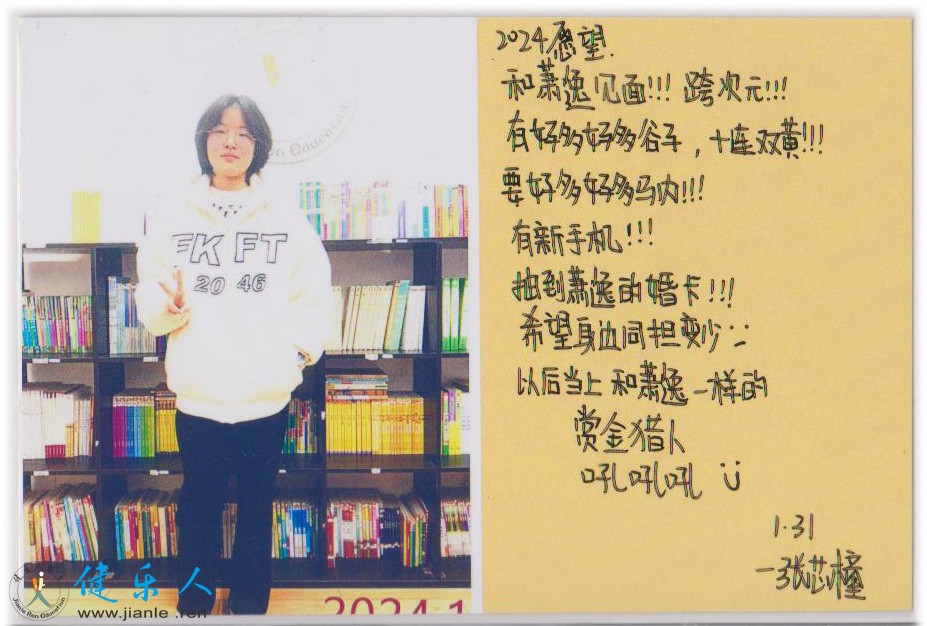 en Education
FK FT
20 46
2024.1
健乐人
www.jianle .ren
Jianle Ren Education
2024愿望.
和萧逸见面!!! 跨次元!!!
有好多好多谷子，十连双黄!!!
要好多好多马内!!!
有新手机!!!
抽到萧逸的婚卡!!!
希望身边同担变少
以后当上和萧逸一样的
赏金猎人
吼吼吼
1.31
—张芯橦